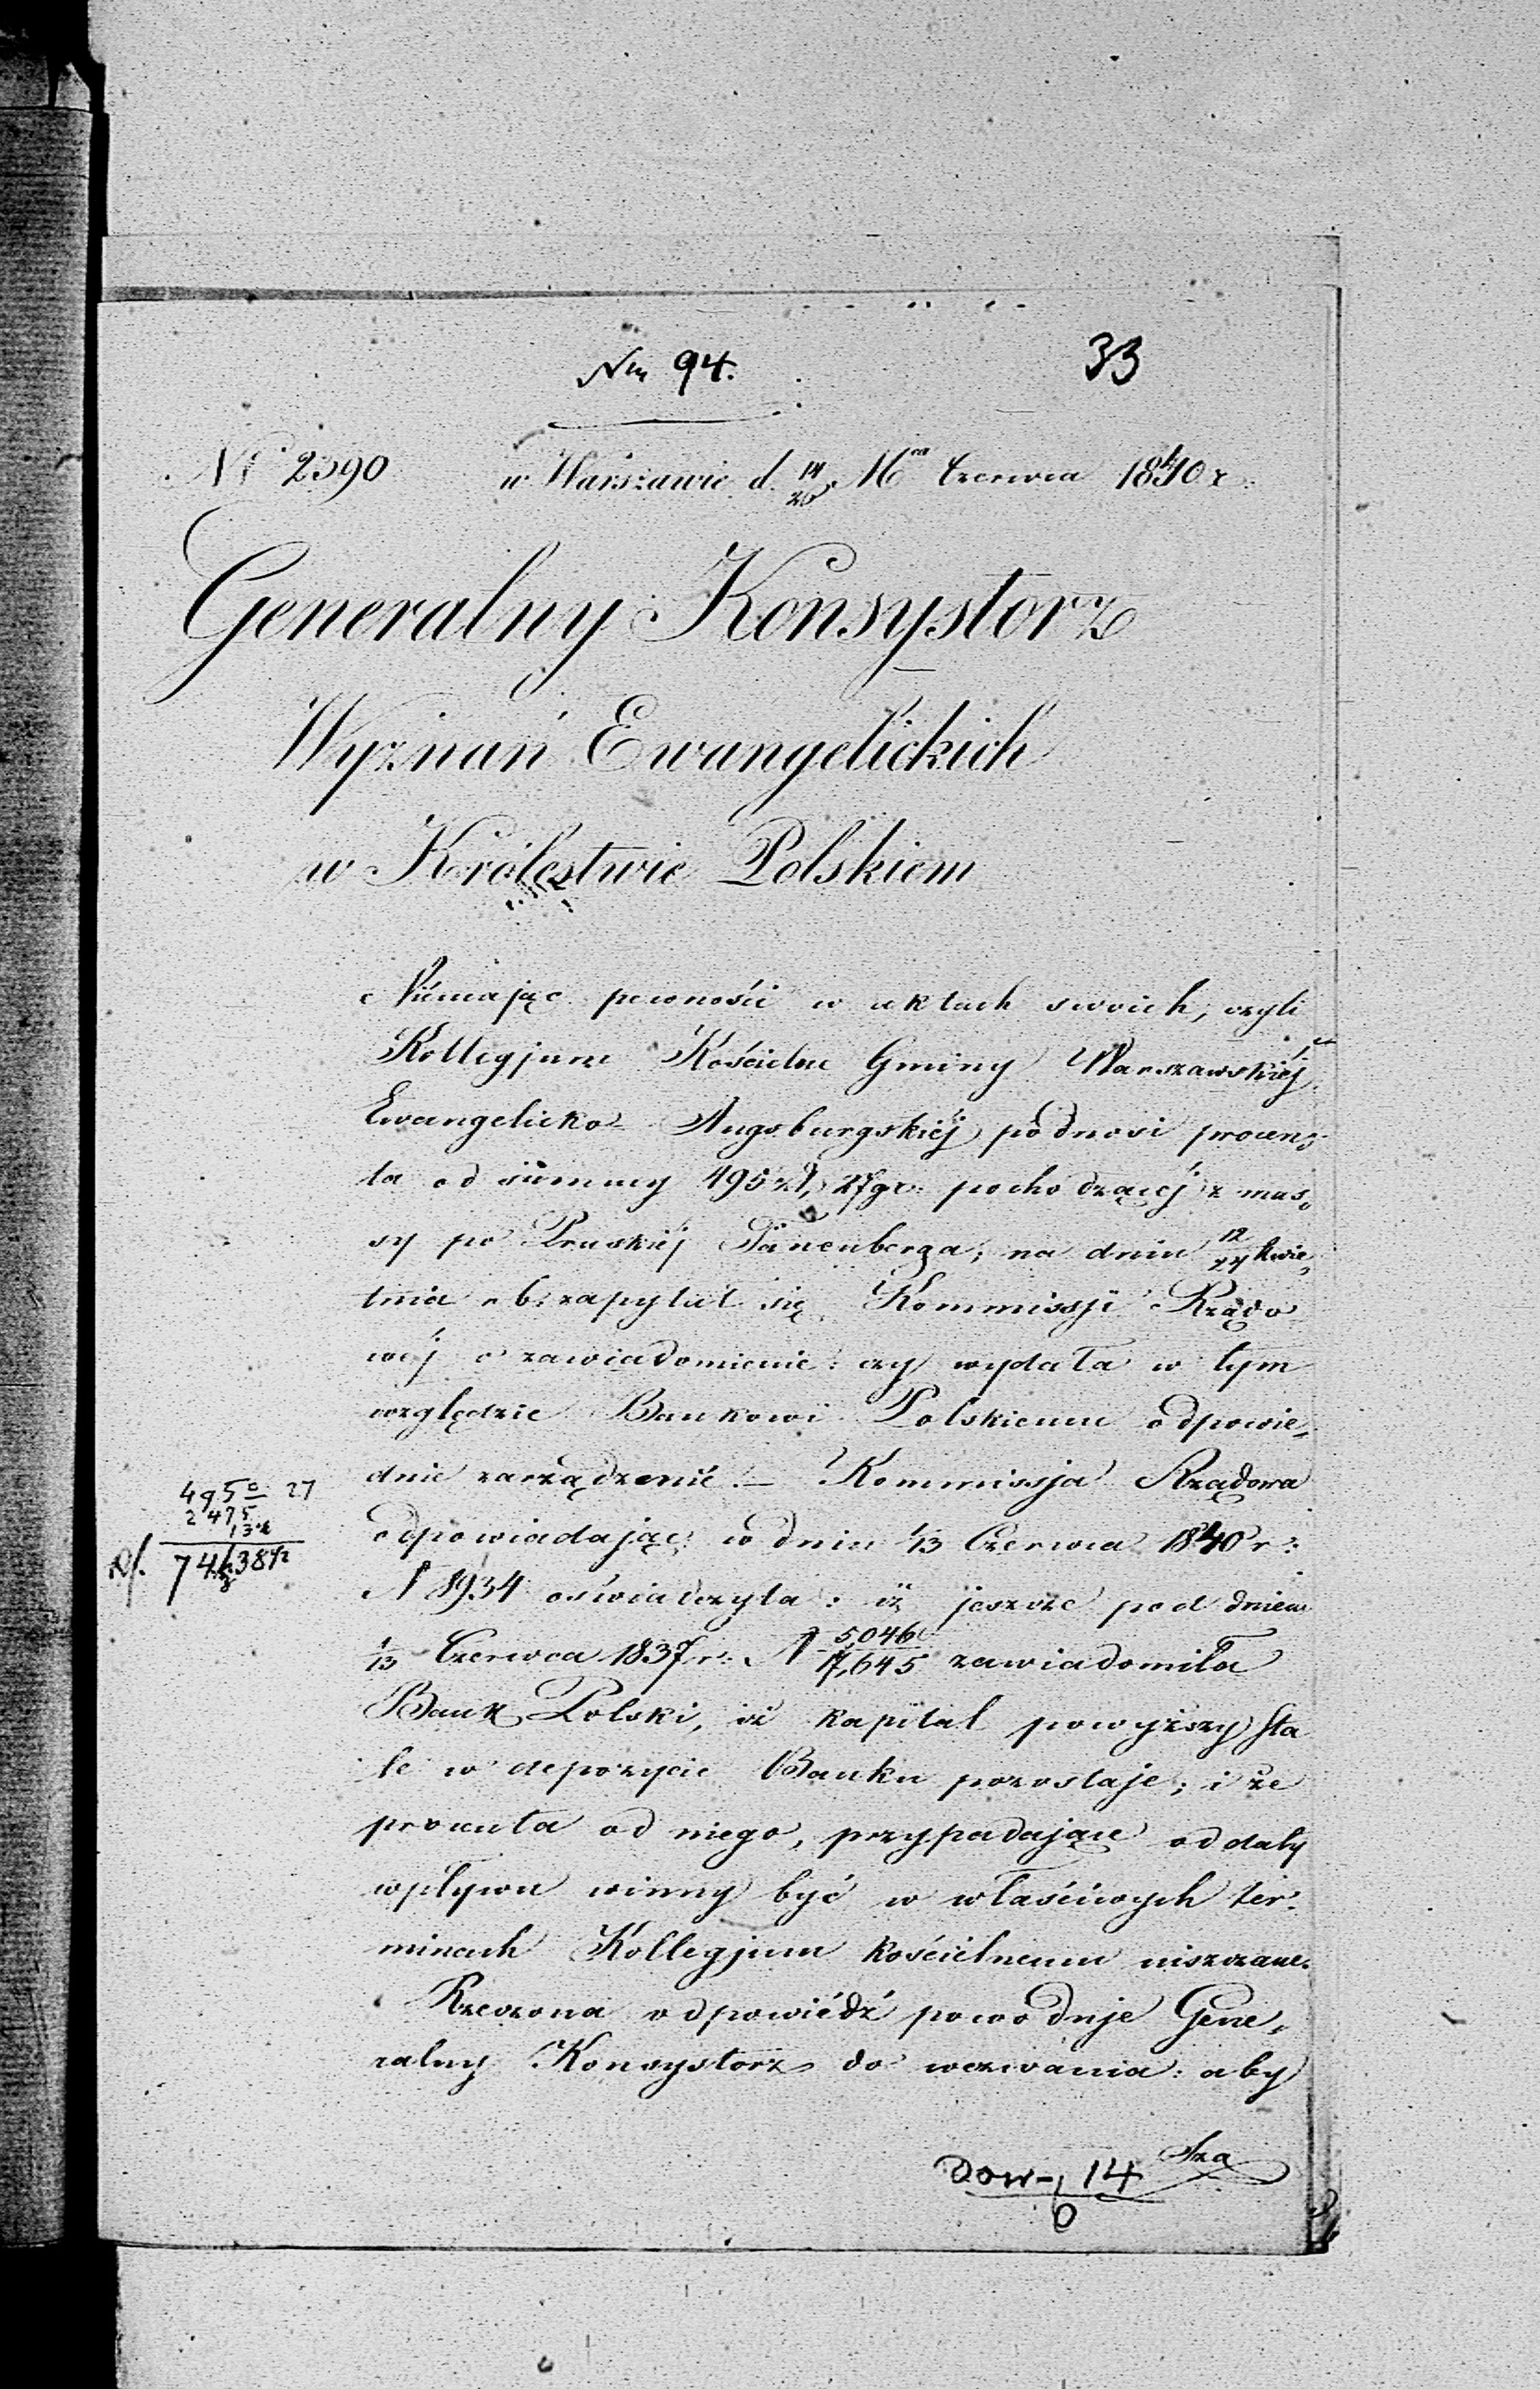 Nm 94.
33
№ 2390 w Warszawie d. 14/26 Mca Czerwca 1840 r.
Generalny Konsystorz
Wyznań Ewangelickich
w Królestwie Polskiem
Niémając pewności w aktach swoich, czyli
Kollegjum Kościelne Gminy Warszawskiéj
Ewangelicko-Augsburgskiéj podnosi procen-
ta od summy 495 zł, 27 gr. pochodzącéj z mas-
sy po Pruskiéj Tänenberga; na dniu 12/24 Kwie-
tnia r. b. zapytał się Kommissji Rządo
wéj o zawiadomienie: czy wydała w tym
względzie Bankowi Polskiemu odpowie-
dnie zarządzenié. – Kommissja Rządowa
odpowiadając; w dniu 1/13 Czerwca 1840 r:
N 8934 oświadczyła: iż jeszcze pod dniem
1/13 Czerwca 1837 r: N 5,046/17,645 zawiadomiła
Bank Polski, iż kapitał powyższy sta
le w depozycie Banku pozostaje; i że
procenta od niego, przypadające od daty
wpływu winny być w właściwych ter-
minach Kollegjum kościelnemu uiszczane.
Rzeczona odpowiédź powoduje Gene-
ralny Konsystorz do wezwania: aby
495 27
2475
Dow-, 14
6